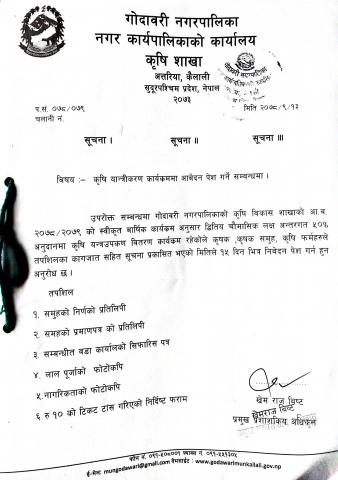 गोदावरी नगरपालिका
नगर कार्यपालिकाको कार्यालय
कृषि शाखा
अत्तरिया, कैलाली
सुदूरपश्चिम प्रदेश, नेपाल
२०७३
प.सं. ०७८/०७९
मिति २०७८/९/१३
चलानी नं.
सूचना । सूचना ॥ सूचना ॥।
विषय :- कृषि यान्त्रीकरण कार्यक्रममा आवेदन पेश गर्ने सम्बन्धमा ।
उपरोक्त सम्बन्धमा गोदावरी नगरपालिकाको कृषि विकास शाखाको आ.ब.
२०७८/०७९ को स्वीकृत बार्षिक कार्यक्रम अनुसार द्वितिय चौमासिक लक्ष अन्तरगत ५०%
अनुदानमा कृषि यन्त्रउपकण वितरण कार्यक्रम रहेकोले कृषक ,कृषक समुह, कृषि फर्महरुले
तपशिलका कागजात सहित सूचना प्रकासित भएको मितिले १५ दिन भित्र निवेदन पेश गर्न हुन
अनुरोध छ ।
तपशिल
१. समुहको निर्णको प्रतिलिपी
२. समहको प्रमाणपत्र को प्रतिलिपी
३. सम्बन्धीत वडा कार्यालको सिफारिस पत्र
४. लाल पूर्जाको फोटोकपि
५ नागरिकताको फोटोकपि
६ रु १० को टिकट टांस गरिएको निर्दिष्ट फाराम
खेम राज बिष्ट
खेमराज बिष्ट
प्रमुख प्रशासकिय अधिकृत
फोन नं. ०९१-५०००११
ई-मेल: mungodawari@gmail.com वेभसाईट : www.godawarimunkailali.gov.np